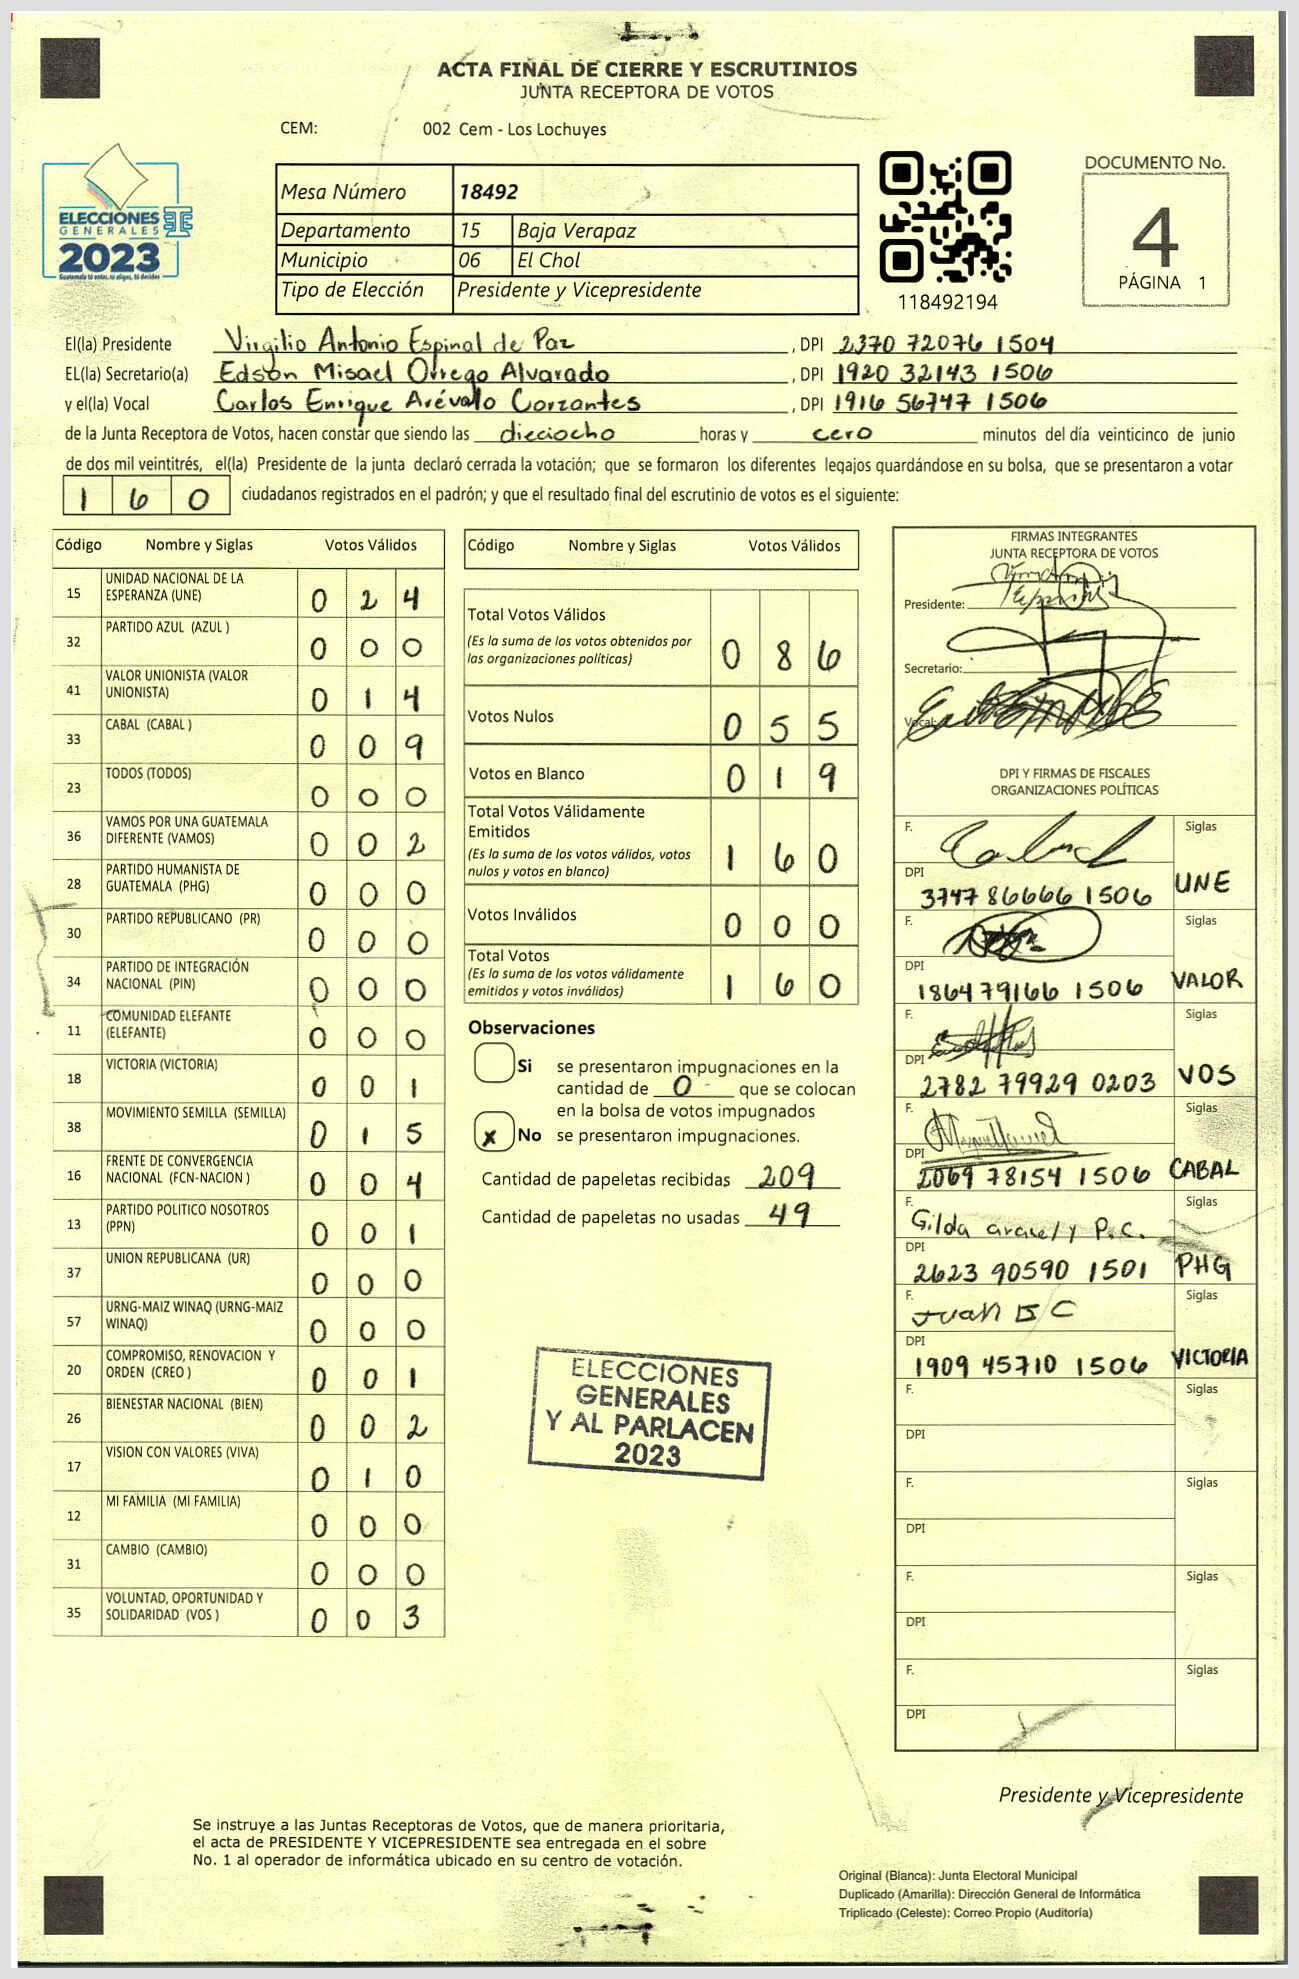 ACTA FINAL DE CIERRE Y ESCRUTINIOS
JUNTA RECEPTORA DE VOTOS
CEM: 002 Cem - Los Lochuyes
ELECCIONES
GENERALES
2023
Guatemala tú votas, tú eliges, tú decides
Mesa Número 18492
Departamento 15 Baja Verapaz
Municipio 06 El Chol
Tipo de Elección Presidente y Vicepresidente
118492194
DOCUMENTO No.
4
PÁGINA 1
El(la) Presidente Virgilio Antonio Espinal de Paz , DPI 2370 72076 1504
EL(la) Secretario(a) Edson Misael Orrego Alvarado , DPI 1920 32143 1506
y el(la) Vocal Carlos Enrique Arévalo Corzantes , DPI 1916 56747 1506
de la Junta Receptora de Votos, hacen constar que siendo las dieciocho horas y cero minutos del día veinticinco de junio
de dos mil veintitrés, el(la) Presidente de la junta declaró cerrada la votación; que se formaron los diferentes legajos guardándose en su bolsa, que se presentaron a votar
1 6 0 ciudadanos registrados en el padrón; y que el resultado final del escrutinio de votos es el siguiente:
Código Nombre y Siglas Votos Válidos
15 UNIDAD NACIONAL DE LA ESPERANZA (UNE) 0 2 4
32 PARTIDO AZUL (AZUL ) 0 0 0
41 VALOR UNIONISTA (VALOR UNIONISTA) 0 1 4
33 CABAL (CABAL ) 0 0 9
23 TODOS (TODOS) 0 0 0
36 VAMOS POR UNA GUATEMALA DIFERENTE (VAMOS) 0 0 2
28 PARTIDO HUMANISTA DE GUATEMALA (PHG) 0 0 0
30 PARTIDO REPUBLICANO (PR) 0 0 0
34 PARTIDO DE INTEGRACIÓN NACIONAL (PIN) 0 0 0
11 COMUNIDAD ELEFANTE (ELEFANTE) 0 0 0
18 VICTORIA (VICTORIA) 0 0 1
38 MOVIMIENTO SEMILLA (SEMILLA) 0 1 5
16 FRENTE DE CONVERGENCIA NACIONAL (FCN-NACION ) 0 0 4
13 PARTIDO POLITICO NOSOTROS (PPN) 0 0 1
37 UNION REPUBLICANA (UR) 0 0 0
57 URNG-MAIZ WINAQ (URNG-MAIZ WINAQ) 0 0 0
20 COMPROMISO, RENOVACION Y ORDEN (CREO ) 0 0 1
26 BIENESTAR NACIONAL (BIEN) 0 0 2
17 VISION CON VALORES (VIVA) 0 1 0
12 MI FAMILIA (MI FAMILIA) 0 0 0
31 CAMBIO (CAMBIO) 0 0 0
35 VOLUNTAD, OPORTUNIDAD Y SOLIDARIDAD (VOS ) 0 0 3
Código Nombre y Siglas Votos Válidos
Total Votos Válidos 0 8 6
(Es la suma de los votos obtenidos por
las organizaciones políticas)
Votos Nulos 0 5 5
Votos en Blanco 0 1 9
Total Votos Válidamente
Emitidos 1 6 0
(Es la suma de los votos válidos, votos
nulos y votos en blanco)
Votos Inválidos 0 0 0
Total Votos 1 6 0
(Es la suma de los votos válidamente
emitidos y votos inválidos)
Observaciones
Si se presentaron impugnaciones en la
cantidad de 0 que se colocan
en la bolsa de votos impugnados
x No se presentaron impugnaciones.
Cantidad de papeletas recibidas 209
Cantidad de papeletas no usadas 49
ELECCIONES
GENERALES
Y AL PARLACEN
2023
FIRMAS INTEGRANTES
JUNTA RECEPTORA DE VOTOS
Presidente:
Secretario:
Vocal:
DPI Y FIRMAS DE FISCALES
ORGANIZACIONES POLÍTICAS
F. Siglas
DPI 3747 86666 1506 UNE
F. Siglas
DPI 1864 79166 1506 VALOR
F. Siglas
DPI 2782 79929 0203 VOS
F. Siglas
DPI 2069 78154 1506 CABAL
F. Gilda aracely P.C. Siglas
DPI 2623 90590 1501 PHG
F. Juan B C Siglas
DPI 1909 45710 1506 VICTORIA
F. Siglas
DPI
F. Siglas
DPI
F. Siglas
DPI
F. Siglas
DPI
Presidente y Vicepresidente
Se instruye a las Juntas Receptoras de Votos, que de manera prioritaria,
el acta de PRESIDENTE Y VICEPRESIDENTE sea entregada en el sobre
No. 1 al operador de informática ubicado en su centro de votación.
Original (Blanca): Junta Electoral Municipal
Duplicado (Amarilla): Dirección General de Informática
Triplicado (Celeste): Correo Propio (Auditoría)